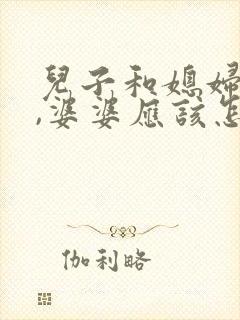 兒子和媳婦
,婆婆應該怎
伽利略